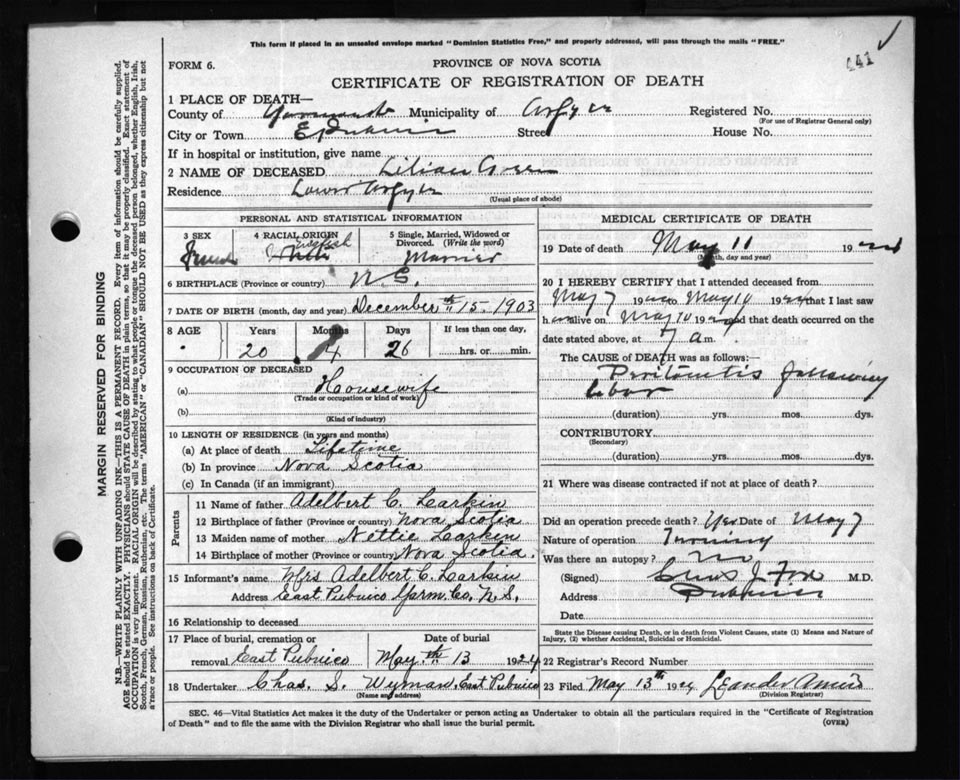 This form if placed in an unsealed envelope marked "Dominion Statistics Free," and properly addressed, will pass through the mails "FREE."
FORM 6.
PROVINCE OF NOVA SCOTIA
CERTIFICATE OF REGISTRATION OF DEATH
1 PLACE OF DEATH—
County of Yarmouth Municipality of Argyle Registered No.
(For use of Registrar General only)
City or Town E Pubnico Street House No.
If in hospital or institution, give name
2 NAME OF DECEASED Lilian
Residence Lower Argyle
(Usual place of abode)
PERSONAL AND STATISTICAL INFORMATION
3 SEX
4 RACIAL ORIGIN
5 Single, Married, Widowed or Divorced. (Write the word)
Female English White Married
6 BIRTHPLACE (Province or country) N.S.
7 DATE OF BIRTH (month, day and year) December th 15. 1903
8 AGE Years Months Days If less than one day,
20 4 26 hrs. or min.
9 OCCUPATION OF DECEASED
(a) Housewife
(Trade or occupation or kind of work)
(b)
(Kind of industry)
10 LENGTH OF RESIDENCE (in years and months)
(a) At place of death Lifetime
(b) In province Nova Scotia
(c) In Canada (if an immigrant)
Parents
11 Name of father Adelbert C. Larkin
12 Birthplace of father (Province or country) Nova Scotia
13 Maiden name of mother Nettie Larkin
14 Birthplace of mother (Province or country) Nova Scotia.
15 Informant's name Mrs Adelbert C. Larkin
Address East Pubnico Yarm. Co. N.S.
16 Relationship to deceased
17 Place of burial, cremation or removal East Pubnico
Date of burial May th 13 1924
18 Undertaker Chas. S. Wyman, East Pubnico
(Name and address)
MEDICAL CERTIFICATE OF DEATH
19 Date of death May 11 1924
(Month, day and year)
20 I HEREBY CERTIFY that I attended deceased from
May 7 1924 to May 10 1924 that I last saw
h er alive on May 10 1924 and that death occurred on the
date stated above, at 7 a m.
The CAUSE of DEATH was as follows:
Peritonitis following
labor
(duration) yrs. mos. dys.
CONTRIBUTORY
(Secondary)
(duration) yrs. mos. dys.
21 Where was disease contracted if not at place of death?
Did an operation precede death? Yes Date of May 7
Nature of operation Turning
Was there an autopsy? No
(Signed) J. Fox M.D.
Address Pubnico
Date
State the Disease causing Death, or in death from Violent Causes, state (1) Means and Nature of
Injury, (2) whether Accidental, Suicidal or Homicidal.
22 Registrar's Record Number
23 Filed May 13th 1924 Leander Amiro
(Division Registrar)
SEC. 46—Vital Statistics Act makes it the duty of the Undertaker or person acting as Undertaker to obtain all the particulars required in the "Certificate of Registration
of Death" and to file the same with the Division Registrar who shall issue the burial permit.
(OVER)
MARGIN RESERVED FOR BINDING
N.B.—WRITE PLAINLY, WITH UNFADING INK—THIS IS A PERMANENT RECORD. Every item of information should be carefully supplied.
AGE should be stated EXACTLY. PHYSICIANS should STATE CAUSE OF DEATH in plain terms, so that it may be properly classified. Exact statement of
OCCUPATION is very important. RACIAL ORIGIN will be described by stating to what people or tongue the deceased person belonged, whether English, Irish,
Scotch, French, German, Russian, Ruthenian, etc. The terms "AMERICAN" or "CANADIAN" SHOULD NOT BE USED as they express citizenship but not
a race or people. See instructions on back of Certificate.